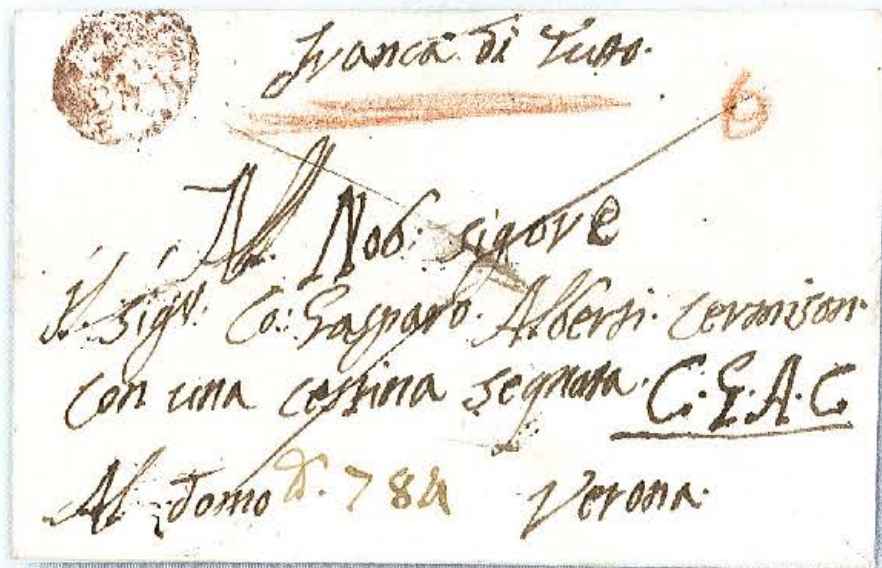 Franca di Tutto.
6
All. Nob: sigore
Il sigr: Co: Gasparo. Alberti. Cermison.
Con una cestina segnata. C. G. A. C.
Al domo 784 Verona.